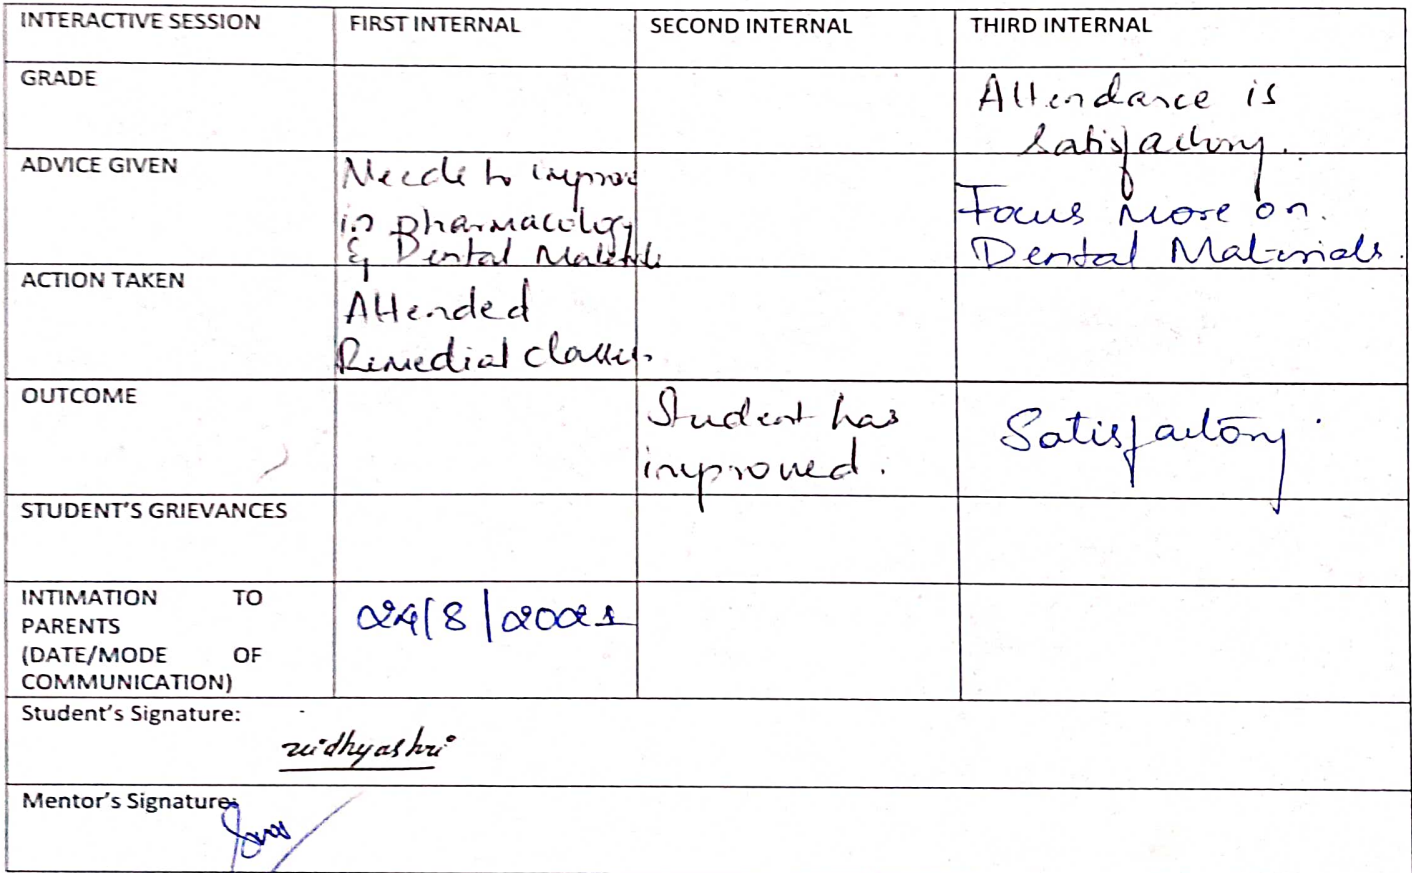 INTERACTIVE SESSION FIRST INTERNAL SECOND INTERNAL THIRD INTERNAL
GRADE Attendance is
Satisfactory.
ADVICE GIVEN Needs to improve Focus more on.
in pharmacology Dental Materials.
& Dental Materials
ACTION TAKEN Attended
Remedial classes.
OUTCOME Student has Satisfactory.
improved.
STUDENT'S GRIEVANCES
INTIMATION TO 24/8/2021
PARENTS
(DATE/MODE OF
COMMUNICATION)
Student's Signature:
vidhyashri
Mentor's Signature: